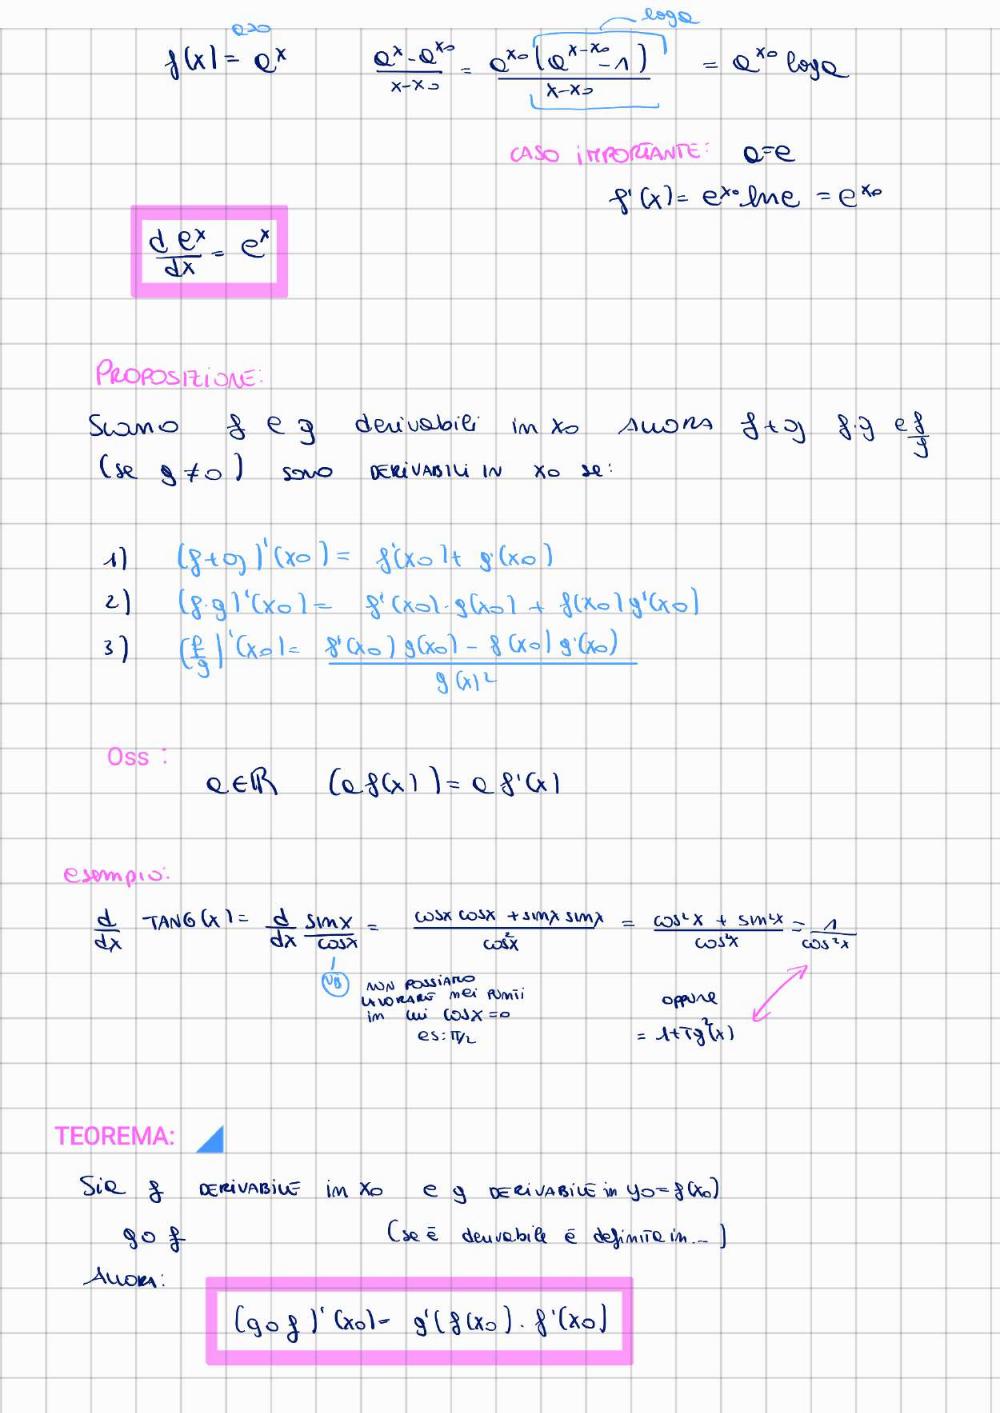 a>0 loga
f(x) = a^x (a^x - a^x0)/(x-x0) = a^x0 (a^(x-x0) - 1)/(x-x0) = a^x0 loga
CASO IMPORTANTE: a=e
f'(x) = e^x0 ln e = e^x0
d e^x/dx = e^x
PROPOSIZIONE:
Siano f e g derivabili in x0 ALLORA f+g f·g e f/g
(se g≠0) sono DERIVABILI IN x0 se:
1) (f+g)'(x0) = f'(x0) + g'(x0)
2) (f·g)'(x0) = f'(x0)·g(x0) + f(x0) g'(x0)
3) (f/g)'(x0) = (f'(x0) g(x0) - f(x0) g'(x0))/g(x)²
Oss :
a∈ℝ (a f(x)) = a f'(x)
esempio:
d/dx TANG(x) = d/dx sinx/cosx = (cosx cosx + sinx sinx)/cos²x = (cos²x + sin²x)/cos²x = 1/cos²x
NB NON POSSIAMO
LAVORARE nei PUNTI
in cui cosx=0
es: π/2
oppure
= 1+Tg²(x)
TEOREMA:
Sia f DERIVABILE in x0 e g DERIVABILE in y0=f(x0)
g o f (se è derivabile è definita in...)
ALLORA:
(g o f)'(x0) = g'(f(x0)·f'(x0)